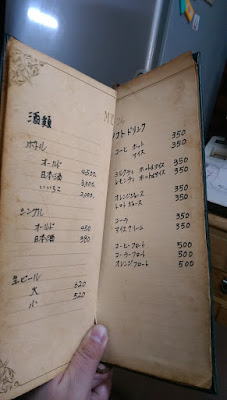 酒類
ボトル
オールド 4500.
日本酒 3,000.
いいちこ 2,000.
シングル
オールド 450
日本酒 380
生ビール
大 620
小 520
MENU
ソフトドリンク
350
コーヒ ホット 350
アイス
350
ミルクティ ホット&アイス 350
レモンティ ホット&アイス 350
オレンジジュース 350
トマトジュース 350
コーラ 350
アイスクリーム 350
コーヒーフロート 500
コーラーフロート 500
オレンジフロート 500